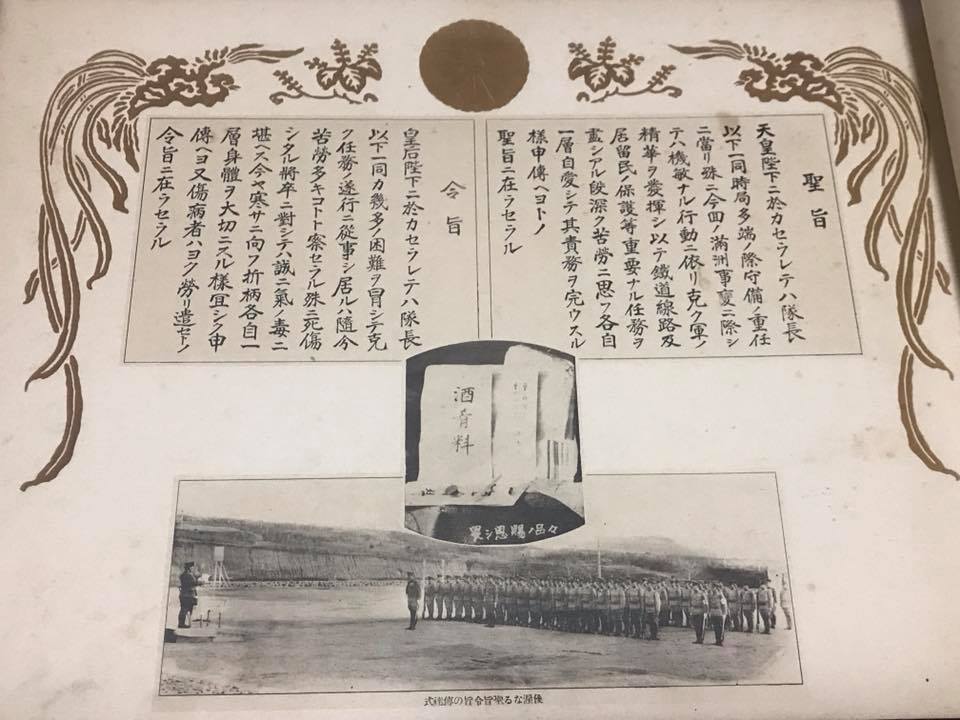 聖旨
天皇陛下ニ於カセラレテハ隊長
以下一同時局多端ノ際守備ノ重任
ニ當リ殊ニ今回ノ滿洲事變ニ際シ
テハ機敏ナル行動ニ依リ克ク軍ノ
精華ヲ發揮シ以テ鐵道線路及
居留民ノ保護等重要ナル任務ヲ
盡シアル段深ク苦勞ニ思フ各自
一層自愛シテ其責務ヲ完ウスル
樣申傳ヘヨトノ
聖旨ニ在ラセラル
令旨
皇后陛下ニ於カセラレテハ隊長
以下一同カ幾多ノ困難ヲ冒シテ克
ク任務ノ遂行ニ從事シ居ルハ隨分
苦勞多キコトト察セラル殊ニ死傷
シタル將卒ニ對シテハ誠ニ氣ノ毒ニ
堪ヘス今ヤ寒サニ向フ折柄各自一
層身體ヲ大切ニスル樣宜シク申
傳ヘヨ又傷病者ハヨク勞リ遣セトノ
令旨ニ在ラセラル
酒肴料
畏シ恩賜ノ品々
優渥なる聖旨令旨の傳達式